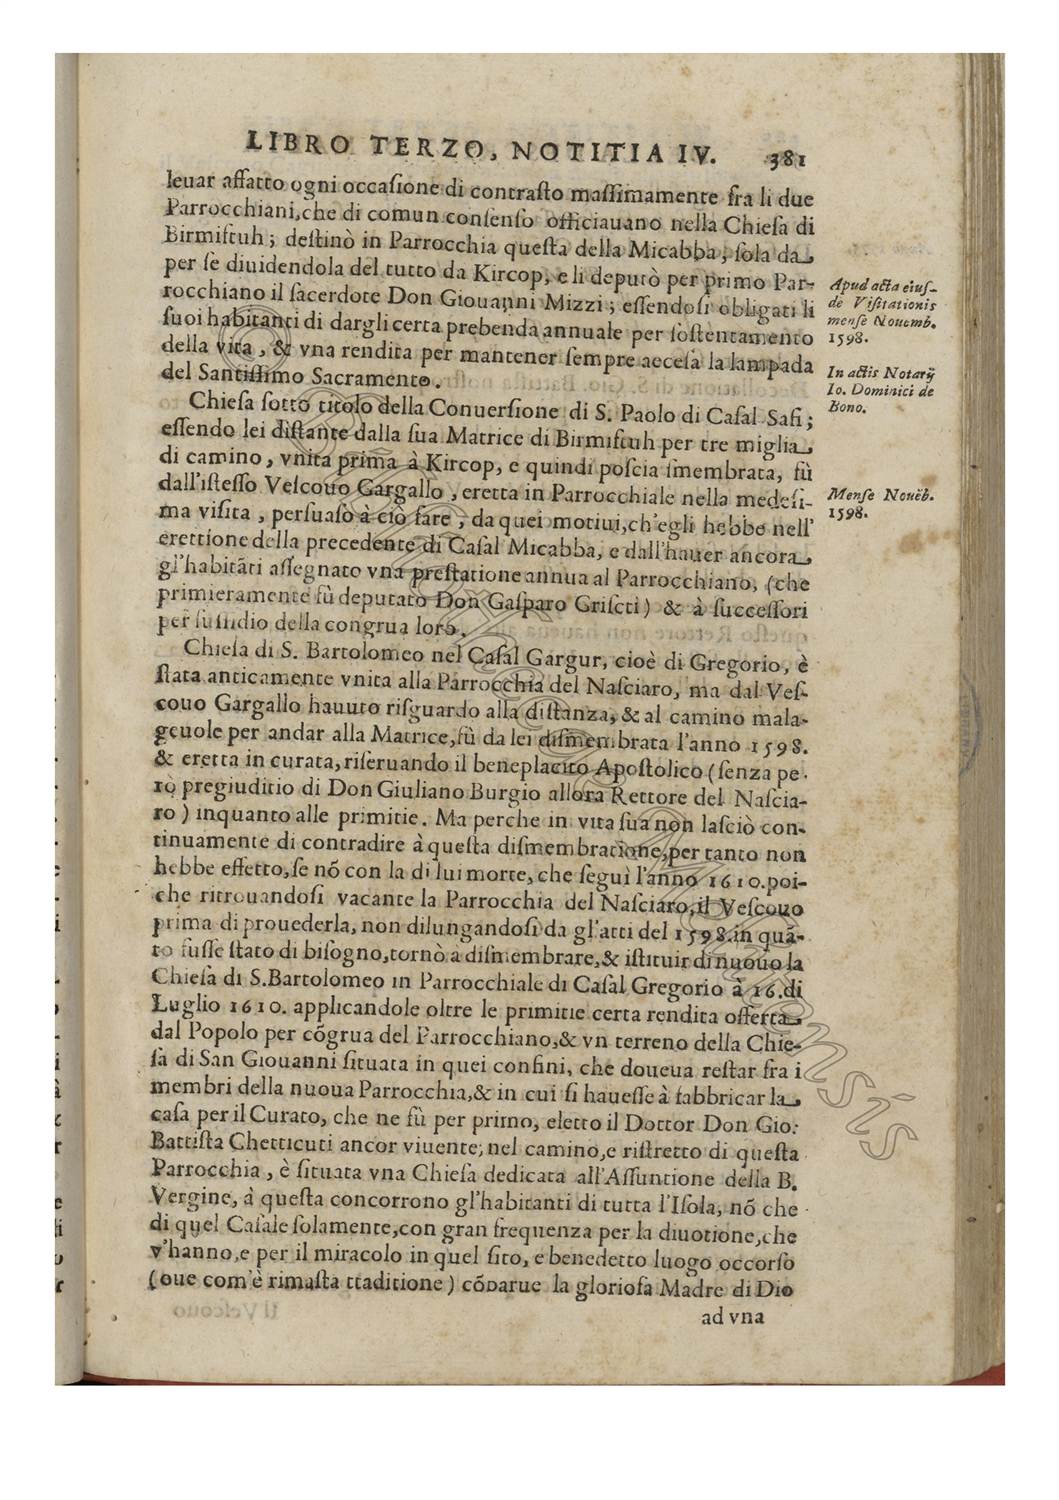 LIBRO TERZO, NOTITIA IV. 381
leuar affatto ogni occaſione di contraſto maſſimamente fra li due
Parrocchiani,che di comun conſenſo officiauano nella Chieſa di
Birmiftuh; deſtinò in Parrocchia queſta della Micabba; ſola da
per ſe diuidendola del tutto da Kircop, e li deputò per primo Par-
rocchiano il ſacerdote Don Giouanni Mizzi; eſſendoſi obligati li
ſuoi habitanti di dargli certa prebenda annuale per ſoſtentamento
della vita, & vna rendita per mantener ſempre acceſa la lampada
del Santiſſimo Sacramento.
Apud acta eiuſ-
de Viſitationis
menſe Nouemb.
1598.
In actis Notarij
Io. Dominici de
Bono.
Chieſa ſotto titolo della Conuerſione di S. Paolo di Caſal Safi;
eſſendo lei diſtante dalla ſua Matrice di Birmiftuh per tre miglia
di camino, vnita prima à Kircop, e quindi poſcia ſmembrata, fù
dall'iſteſſo Veſcouo Gargallo, eretta in Parrocchiale nella medeſi-
ma viſita, perſuaſo à ciò fare, da quei motiui,ch'egli hebbe nell'
erettione della precedente di Caſal Micabba, e dall'hauer ancora
gl'habitāti aſſegnato vna preſtatione annua al Parrocchiano, (che
primieramente fù deputato Don Gaſparo Griſcti) & à ſucceſſori
per ſuſſidio della congrua loro.
Menſe Nouēb.
1598.
Chieſa di S. Bartolomeo nel Caſal Gargur, cioè di Gregorio, è
ſtata anticamente vnita alla Parrocchia del Naſciaro, ma dal Veſ-
couo Gargallo hauuto riſguardo alla diſtanza, & al camino mala-
geuole per andar alla Matrice,fù da lei diſmembrata l'anno 1598.
& eretta in curata, riſeruando il beneplacito Apoſtolico (ſenza pe-
rò pregiuditio di Don Giuliano Burgio allora Rettore del Naſcia-
ro) inquanto alle primitie. Ma perche in vita ſua non laſciò con-
tinuamente di contradire à queſta diſmembratione,per tanto non
hebbe effetto, ſe nō con la di lui morte, che ſeguì l'anno 1610.poi-
che ritrouandoſi vacante la Parrocchia del Naſciaro,il Veſcouo
prima di prouederla, non dilungandoſi da gl'atti del 1598.in quā-
to fuſſe ſtato di biſogno,tornò à diſmembrare,& iſtituir di nuouo la
Chieſa di S.Bartolomeo in Parrocchiale di Caſal Gregorio à 16.di
Luglio 1610. applicandole oltre le primitie certa rendita offerta
dal Popolo per cōgrua del Parrocchiano,& vn terreno della Chie-
ſa di San Giouanni ſituata in quei confini, che doueua reſtar fra i
membri della nuoua Parrocchia,& in cui ſi haueſſe à fabbricar la
caſa per il Curato, che ne fù per primo, eletto il Dottor Don Gio:
Battiſta Ghetticuti ancor viuente; nel camino,e riſtretto di queſta
Parrocchia, è ſituata vna Chieſa dedicata all'Aſſuntione della B.
Vergine, à queſta concorrono gl'habitanti di tutta l'Iſola, nō che
di quel Caſale ſolamente,con gran frequenza per la diuotione,che
v'hanno,e per il miracolo in quel ſito, e benedetto luogo occorſo
(oue com'è rimaſta ttaditione) cōparue la glorioſa Madre di Dio
ad vna